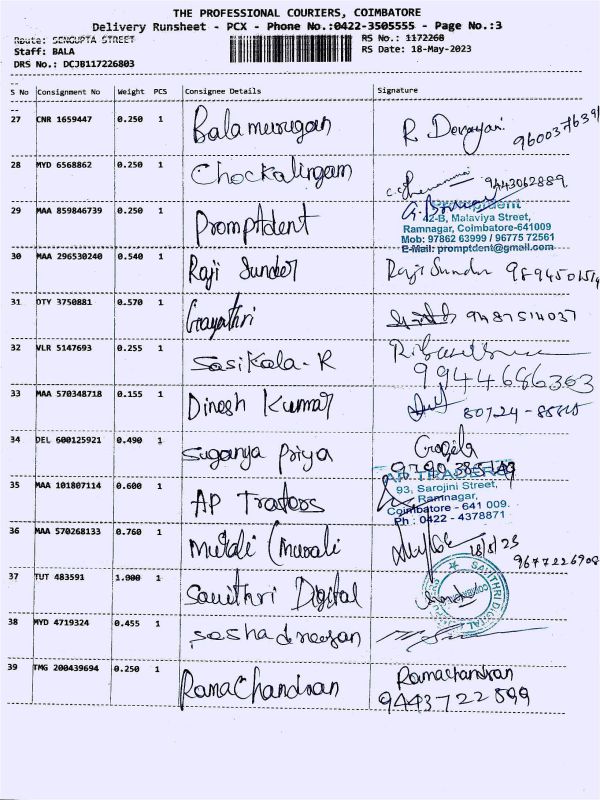 THE PROFESSIONAL COURIERS, COIMBATORE
Delivery Runsheet - PCX - Phone No.:0422-3505555 - Page No.:3
Route: SENGUPTA STREET
RS No.: 1172268
Staff: BALA
RS Date: 18-May-2023
DRS No.: DCJB117226803
S No Consignment No Weight PCS Consignee Details Signature
27 CNR 1659447 0.250 1 Balamurugan R Devayani
28 MYD 6568862 0.250 1 Chockalingam 9443062889
29 MAA 859846739 0.250 1 Promptdent
Promptdent
42-B, Malaviya Street,
Ramnagar, Coimbatore-641009
Mob: 97862 63999 / 96775 72561
E-Mail: promptdent@gmail.com
30 MAA 296530240 0.540 1 Raji Sunder Raji Sunder
31 DTY 3750881 0.570 1 Gayathri 9487514037
32 VLR 5147693 0.255 1 Sasikala-R
9944686363
33 MAA 570348718 0.155 1 Dinesh Kumar
34 DEL 600125921 0.490 1 Suganya Priya
35 MAA 101807114 0.600 1 AP Traders
AP TRADERS
93, Sarojini Street,
Ramnagar,
Coimbatore - 641 009.
Ph : 0422 - 4378871
36 MAA 570268133 0.760 1 18/5/23
9677226908
37 TUT 483591 1.000 1 Savithri Digital
SAVITHRI DIGITAL
COIMBATORE
38 MYD 4719324 0.455 1
39 TMG 200439694 0.250 1 Ramachandran Ramachandran
9443722899